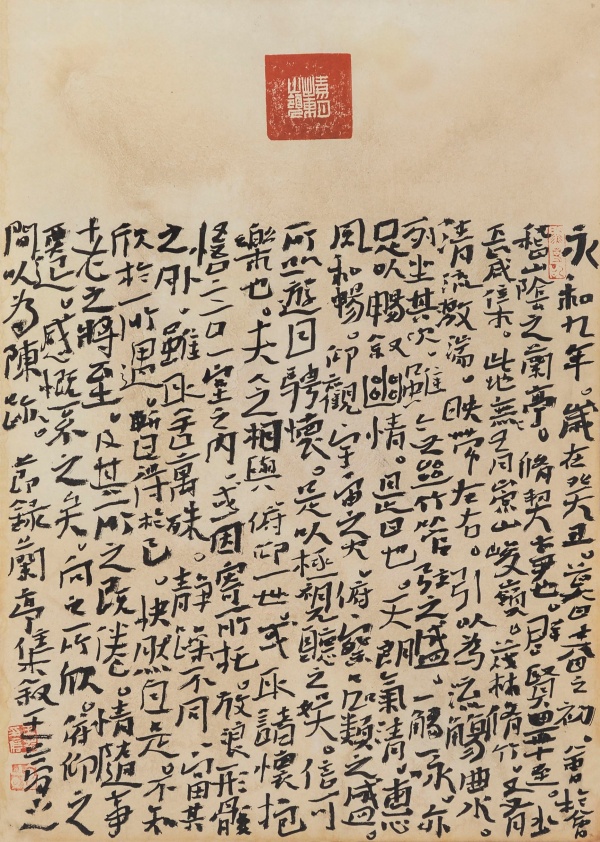 永和九年。歲在癸丑。莫春之初。會於會
稽山陰之蘭亭。脩禊事也。群賢畢至。少
長咸集。此地有崇山峻嶺。茂林脩竹。又有
清流激湍。映帶左右。引以為流觴曲水。
列坐其次。雖無絲竹管弦之盛。一觴一詠。亦
足以暢叙幽情。是日也。天朗氣清。惠
風和暢。仰觀宇宙之大。俯察品類之盛。
所以遊目騁懷。足以極視聽之娛。信可
樂也。夫人之相與。俯仰一世。或取諸懷抱
悟言一室之內。或因寄所托。放浪形骸
之外。雖取舍萬殊。靜躁不同。當其
欣於所遇。暫得於己。快然自足。不知
老之將至。及其所之既倦。情隨事
遷。感慨系之矣。向之所欣。俯仰之
間以為陳跡。節錄蘭亭集叙